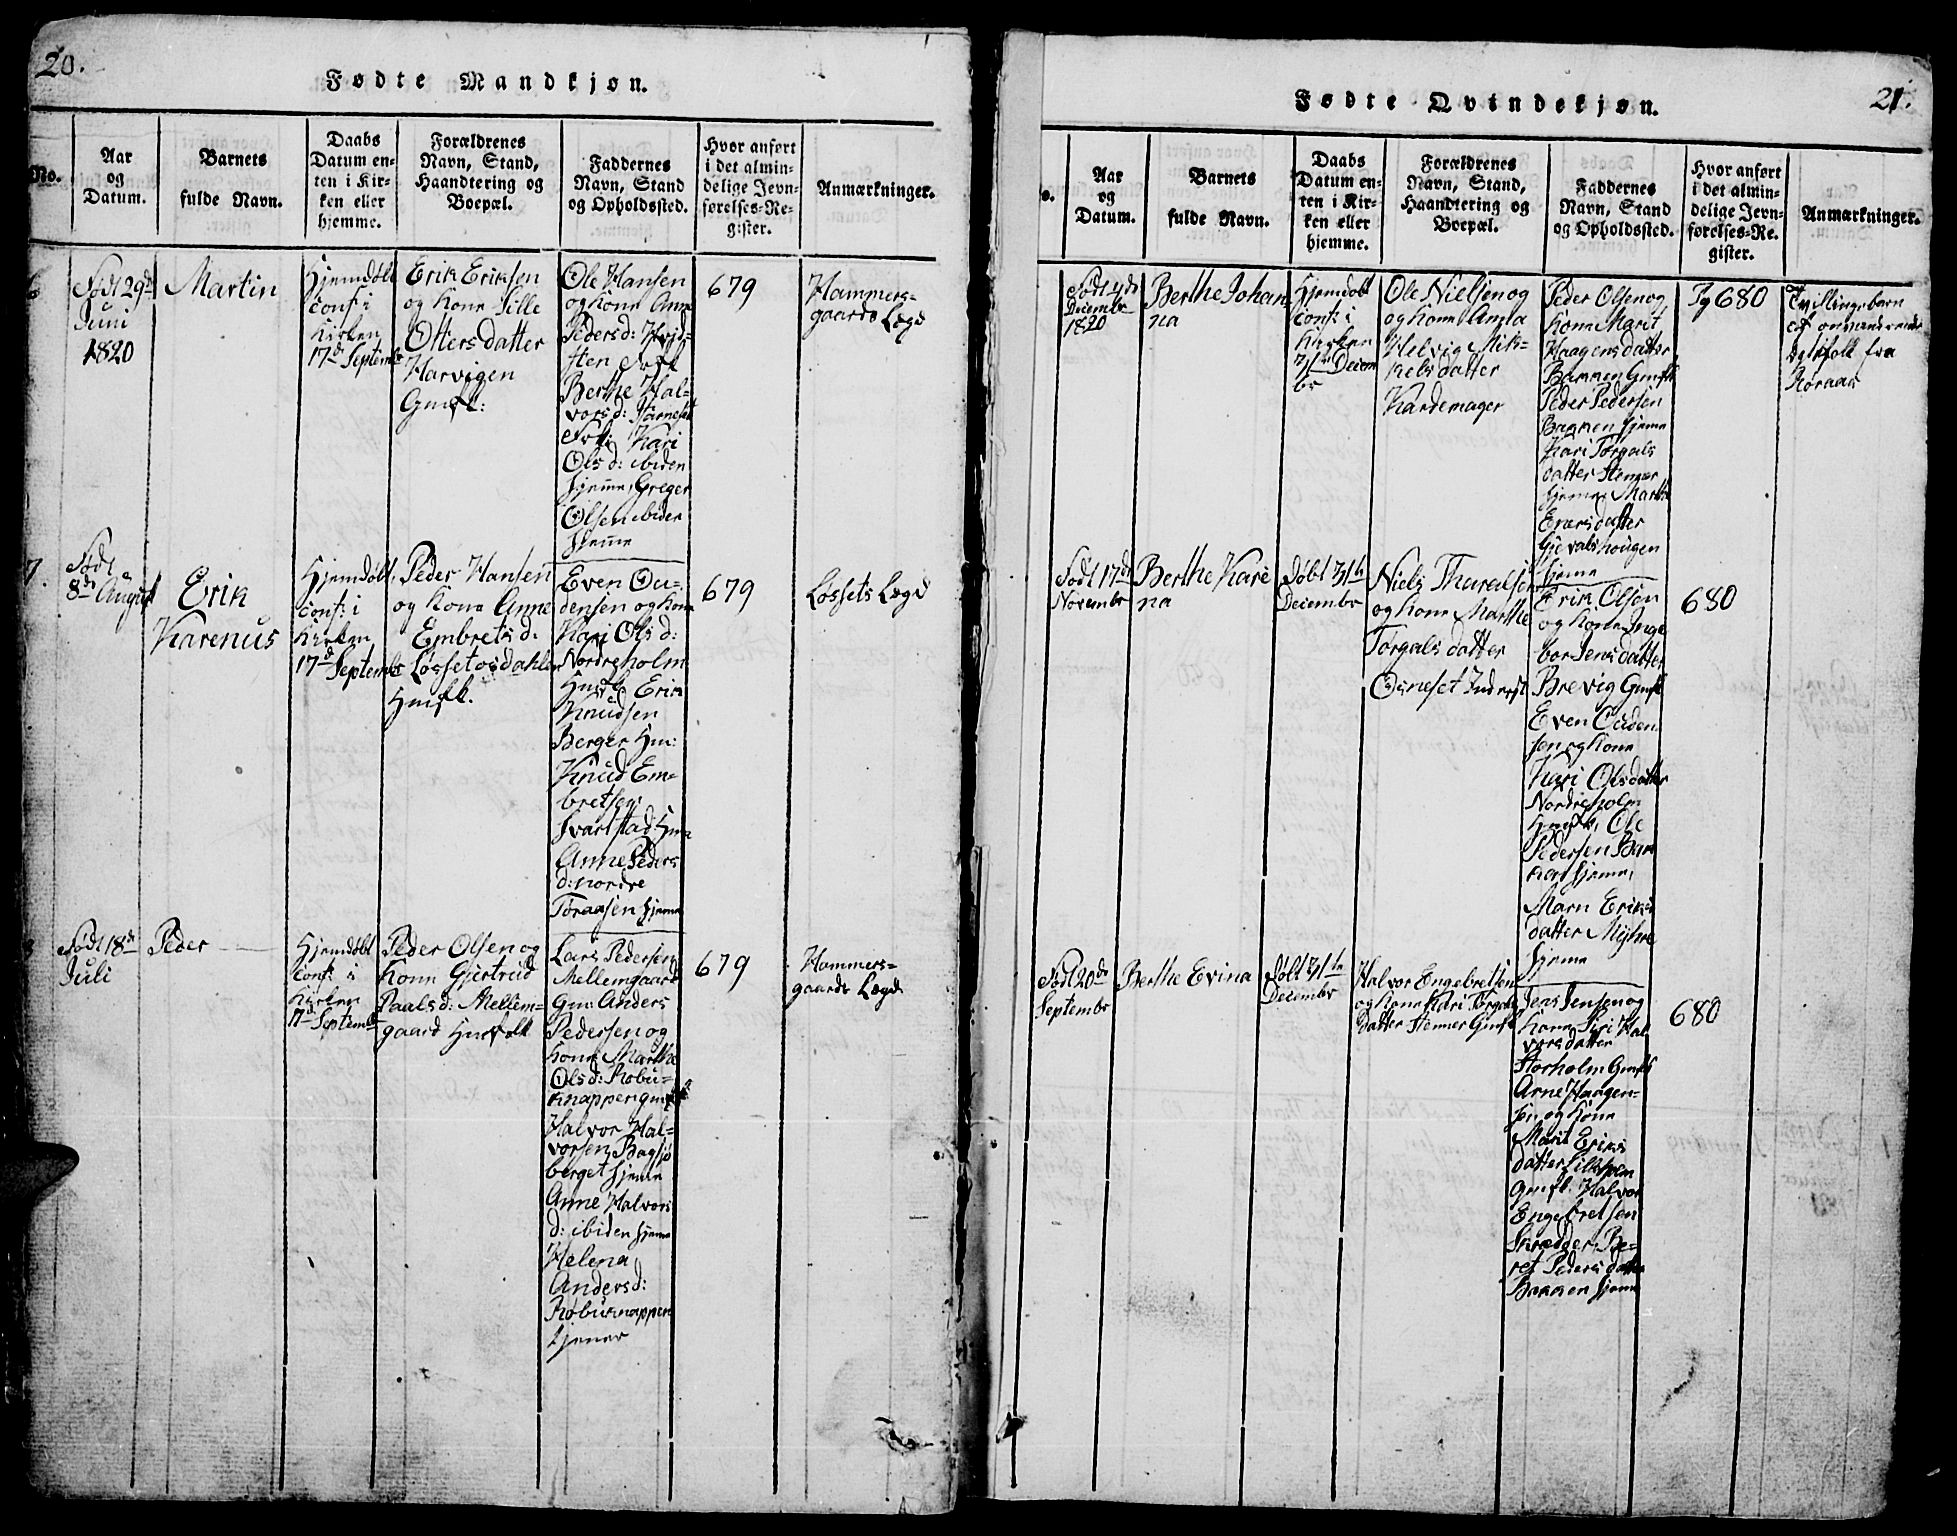 20.
Fødte Mandkjøn.
No.
Aar
og
Datum.
Barnets
fulde Navn.
Daabs
Datum en-
ten i Kir-
ken eller
hjemme.
Forældrenes
Navn, Stand,
Haandtering og
Boepæl.
Faddernes
Navn, Stand
og Opholdssted.
Hvor anført
i det almin-
delige Jevn-
førelses-Re-
gister.
Anmærkninger.
6
Født 29de
Juni
1820
Martin
Hjemdøbt
conf: i
Kirken
17d Septembr
Erik Eriksen
og Kone Sille
Ottersdatter
Harvigen
Gmfk:
Ole Hansen
og Kone Anne
Pedersd:
Berthe Hal-
vorsd:
Kari
Olsd: ibiden
hjeme, Greger
Olsen ibiden
hjeme
679
Hammers-
gaards Lægd
7.
Født
8de August
Erik
Karenus
Hjemdøbt,
conf: i
Kirken
17d Septembr
Peder Hansen
og Kone Anne
Embretsd:
Løssetosdahlen
Husfk.
Even Ou-
densen og Kone
Kari Olsd:
Nordreholm
Husfk Erik
Knudsen
Berger Hm:
Knud Em-
bretsen
Svartstad
Anne Peders
d: nordre
Toraasen hjeme
679
Løssets Lægd
Født 18de
Juli
Peder
Hjemdøbt
conf: i
Kirken
17d Septembr
Peder Olsen og
Kone Gjertrud
Paalsd: Mellem-
gaard Husfolk
Lars Pedersen
Mellemgaard
Gm: Anders
Pedersen og
Kone Marthe
Olsd: Kobu-
knappen gmfk
Halvor Hal-
vorsen Bagsjø
berget hjeme
Anne Halvors
d: ibiden hjeme
Helena
Andersd:
Kobuknappen
hjeme
679
Hammers-
gaards Lægd
21.
Fødte Qvindekjøn.
o.
Aar
og
Datum.
Barnets
fulde Navn.
Daabs
Datum en-
ten i Kir-
ken eller
hjemme.
Forældrenes
Navn, Stand,
Haandtering og
Boepæl.
Faddernes
Navn, Stand
og Opholdssted.
Hvor anført
i det almin-
delige Jevn-
førelses-Re-
gister.
Anmærkninger.
Født 4de
Decembr
1820
Berthe Johan
na
Hjemdøbt
conf: i
Kirken
31te Decem
br
Ole Nielsen og
og Kone Anna
Helvig Mik-
kelsdatter
Kardemager
Peder Olsen og
Kone Marit
Haagensdatter
Bakken Gmfk
Peder Pedersen
Bakken hjeme
Kari Torgals
datter Stemer
hjeme, Marthe
Enersdatter
Gjevalshougen
hjeme
Pg 680
Tvillingebarn
af omvandrende
folk fra
Røraas
Født 17de
Novembr
Berthe Kare
na
Døbt 31te
Decembr
Niels Tharalsen
og Kone Marthe
Torgalsdatter
Osneset Inderst
Erik Olsen
og Kone Inge
bor Jensdatter
Brevig Gmfk
Even Ouden
sen og Kone
Kari Olsdatter
Nordreholm
Husfk, Ole
Pedersen Bak
ken hjeme,
Marn Eriks
datter Myhre
hjeme
680
Født 20de
Septembr
Berthe Evina
Døbt 31te
Decembr
Halvor Engebretsen
og Kone Kari Torgals
datter Stemer Gmfk
Jens Jensen og
Kone Siri Hal
vorsdatter
Storholm Gmfk
Arne Haagen-
sen og Kone
Marit Eriks
datter Lilleholm
Gmfk. Halvor
Engebretsen
Snedker, Be-
ret Pedersdatter
Bakken hjeme
680